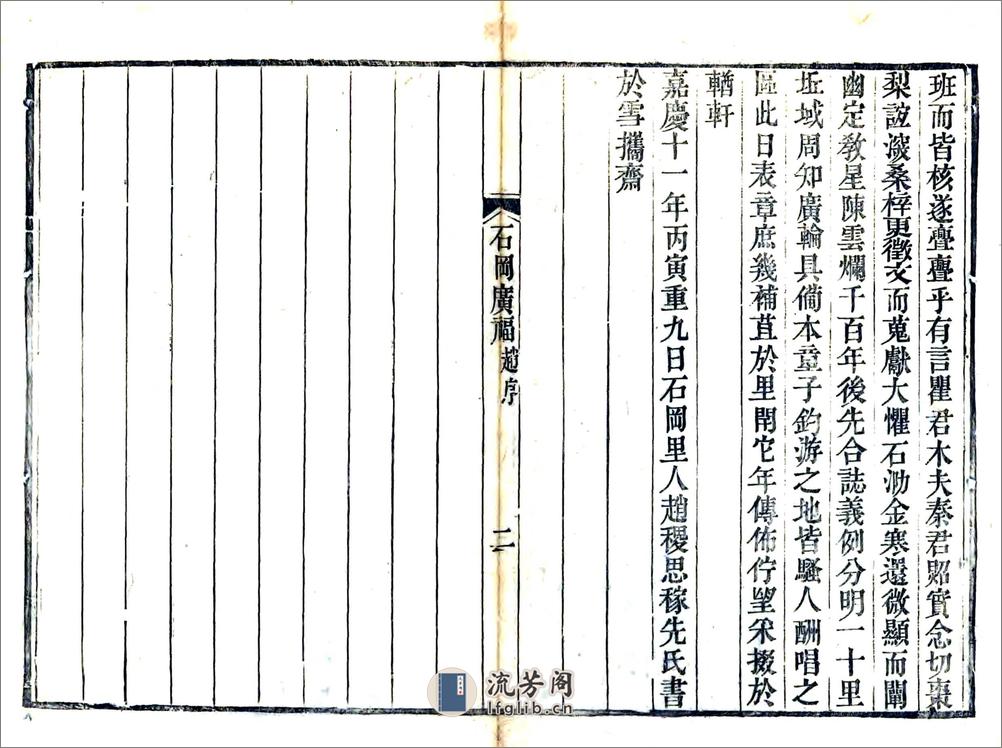 班而皆核遂亹亹乎有言瞿君木夫秦君照實念切棗
梨誼濃桑梓更徵文而蒐獻大懼石泐金寒還微顯而闡
幽定教星陳雲爛千百年後先合誌義例分明一十里
坵域周知廣輪具僃本章子釣游之地皆騷人酬唱之
區此日表章庶幾補苴於里閈它年傳佈佇望釆掇於
輶軒
嘉慶十一年丙寅重九日石岡里人趙稷思稼先氏書
於雪㩦齋
石岡廣福 趙序 二
流芳阁
lfglib.cn